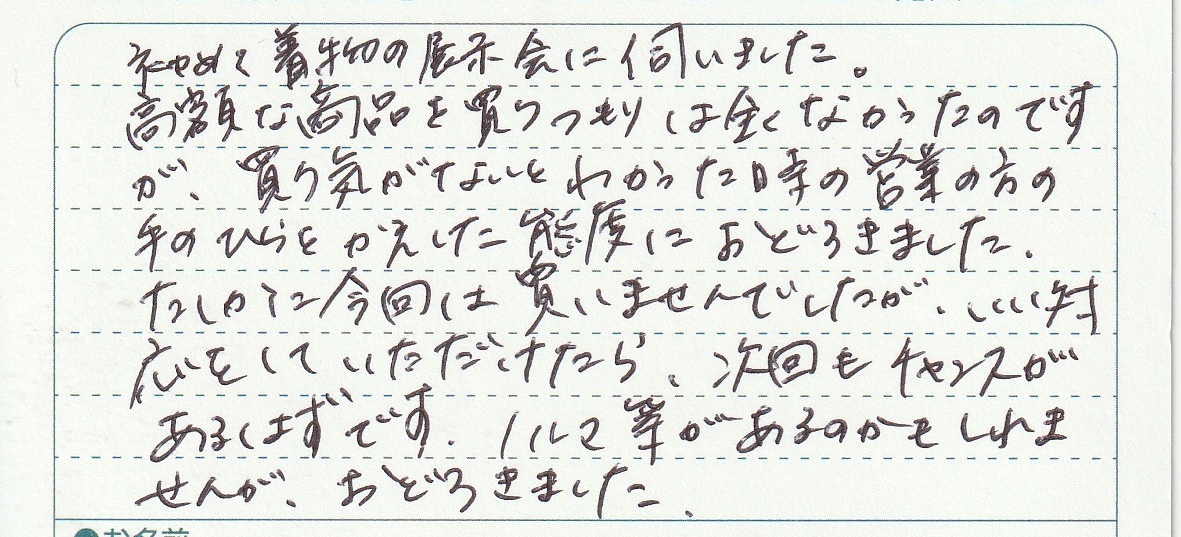 初めて着物の展示会に伺いました。
高額な商品を買うつもりは全くなかったのです
が、買う気がないとわかった時の営業の方の
手のひらをかえした態度におどろきました。
たしかに今回は買いませんでしたが、いい対
応をしていただけたら、次回もチャンスが
あるはずです。ノルマ等があるのかもしれま
せんが、おどろきました。
●お名前